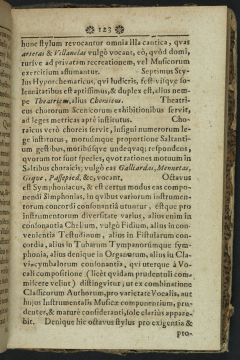 123
hunc stylum revocantur omnia illa cantica, quas
arietas & Villanelas vulgò vocant, eò, quòd domi,
rursivè ad privatam recreationem, vel Musicorum
exercitium assumantur. Septimus Sty-
lus Hyporchematicus, qui ludicris, festivisque so-
lennitatibus est aptissimus, & duplex est, alius nem-
pe Theatricus, alius Choraicus. Theatri-
cus chororum Scenicorum exhibitionibus servit,
ad leges metricas aptè institutus. Cho-
raicus verò choreis servit, insigni numerorum le-
ge instructus, motuúmque proportione Saltanti-
um gestibus, motibúsque undequaq; respondens,
quorum tot sunt species, quot rationes motuum in
Saltibus choraicis; vulgò eas Galliardas, Menuetas,
Gique, Passepied, &c, vocant. Octavus
est Symphoniacus, & est certus modus eas compo-
nendi Simphonias, in quibus variorum instrumen-
torum concors consonantia utuntur, estque pro
instrumentorum diversitate varius, alius enim in
consonantia Chelium, vulgò Fidium, alius in con-
venientia Testudinum, alius in Fistularum con-
cordia, alius in Tubarum Tympanorúmque sym-
phonia, alius denique in Organorum, alius in Cla-
vicymbalorum consonantia, qui uterque à Vo-
cali compositione (licèt quidam prudentuli com-
misceri velint) distinguitur, ut ex combinatione
Classicorum Authorum, pro varietate Vocalis, aut
hujus Instrumentalis Musicæ componentium, pru-
denter, & maturè consideranti, sole clariùs appare-
bit. Denique hic octavus stylus pro exigentia &
pro-